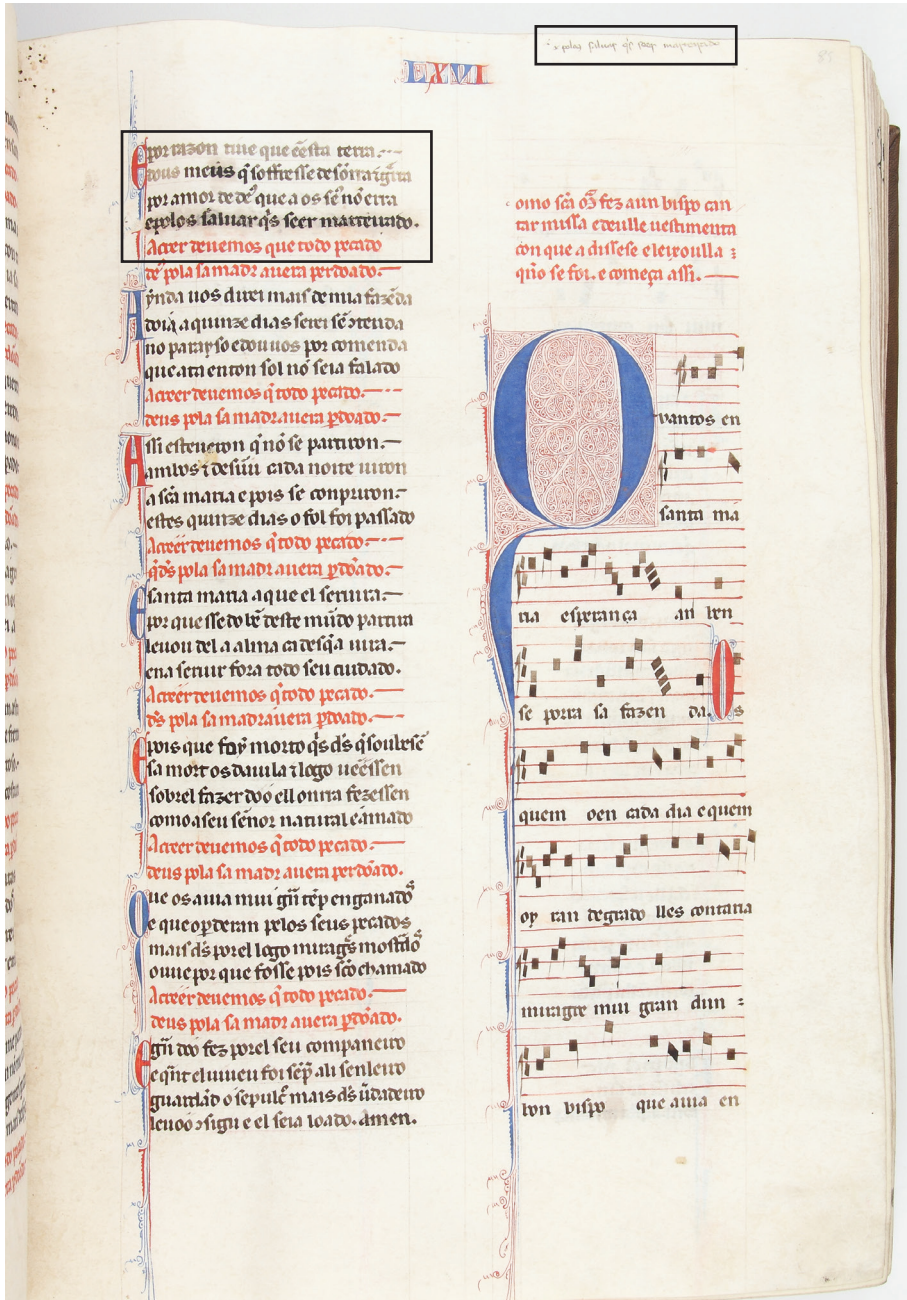 e polos saluar q̄s seer marteirado
85
LXVI
E por razon tiue que eesta terra.
deus meus q̄ soffresse desonrra i g̃rra
por amor de de᷒ que a os sẽ nõ erra
e polos saluar q̄s seer marteirado.
A creer deuemos que todo pecado
de᷒ pola sa madr auera perdoado.
Aynda uos direi mais de mia fazẽda
doiá a quinze dias serei sẽ ↄtenda
no parayso e dou uos por comenda
que ata enton sol nõ seia falado
A creer deuemos q̄ todo pecado.
deus pola sa madr auera ꝑdoado.
Assi esteueron q̄ nõ se partiron.
ambos ⁊ desũu cada noite uiron
a sc̃a maria e pois se conpriron.
estes quinze dias o sol foi passado
A creer deuemos q̄ todo pecado.
q̄ ds̃ pola sa madr auera ꝑdoado.
E santa maria a que el seruira.
por que sse do bẽ deste mũdo partira
leuou del a alma ca desq̄ a uira.
en a seruir fora todo seu cuidado.
A creer deuemos q̄ todo pecado.
ds̃ pola sa madr auera ꝑdoado.
E pois que foy morto q̄s ds̃ q̄ soubessẽ
sa mort os dauila ⁊ logo ueẽssen
sobrel fazer doo e ll onrra fezessen
como a seu sẽnor natural e amado
A creer deuemos q̄ todo pecado.
deus pola sa madr auera ꝑdoado.
Que os auia mui g̃n tẽp enganado᷒
e que o perderan pelos seus pecados
mais ds̃ por el logo miragr̃s mostrado᷒
ouue por que fosse pois sc̃o chamado
A creer deuemos q̄ todo pecado.
deus pola sa madr auera ꝑdoado.
E g̃n doo fez por el seu companeiro
e q̃nt el uiueu foi sẽp̄ ali senlleiro
guardãd o sepulcr̃ mais ds̃ ũdadeiro
leuoo ↄsigu e el seia loado. amen.
Como sc̃a mã fez a un bispo can
tar missa e deulle uestimenta
con que a dissese e leixoulla :
qñdo se foi. e começa assi.
Quantos en
santa ma
ria esperança an ben
se porra sa fazen da. Os
quem oen cada dia e quem
oy ran de grado lles contaria
miragre mui gran dun :
bon bispo que auia en